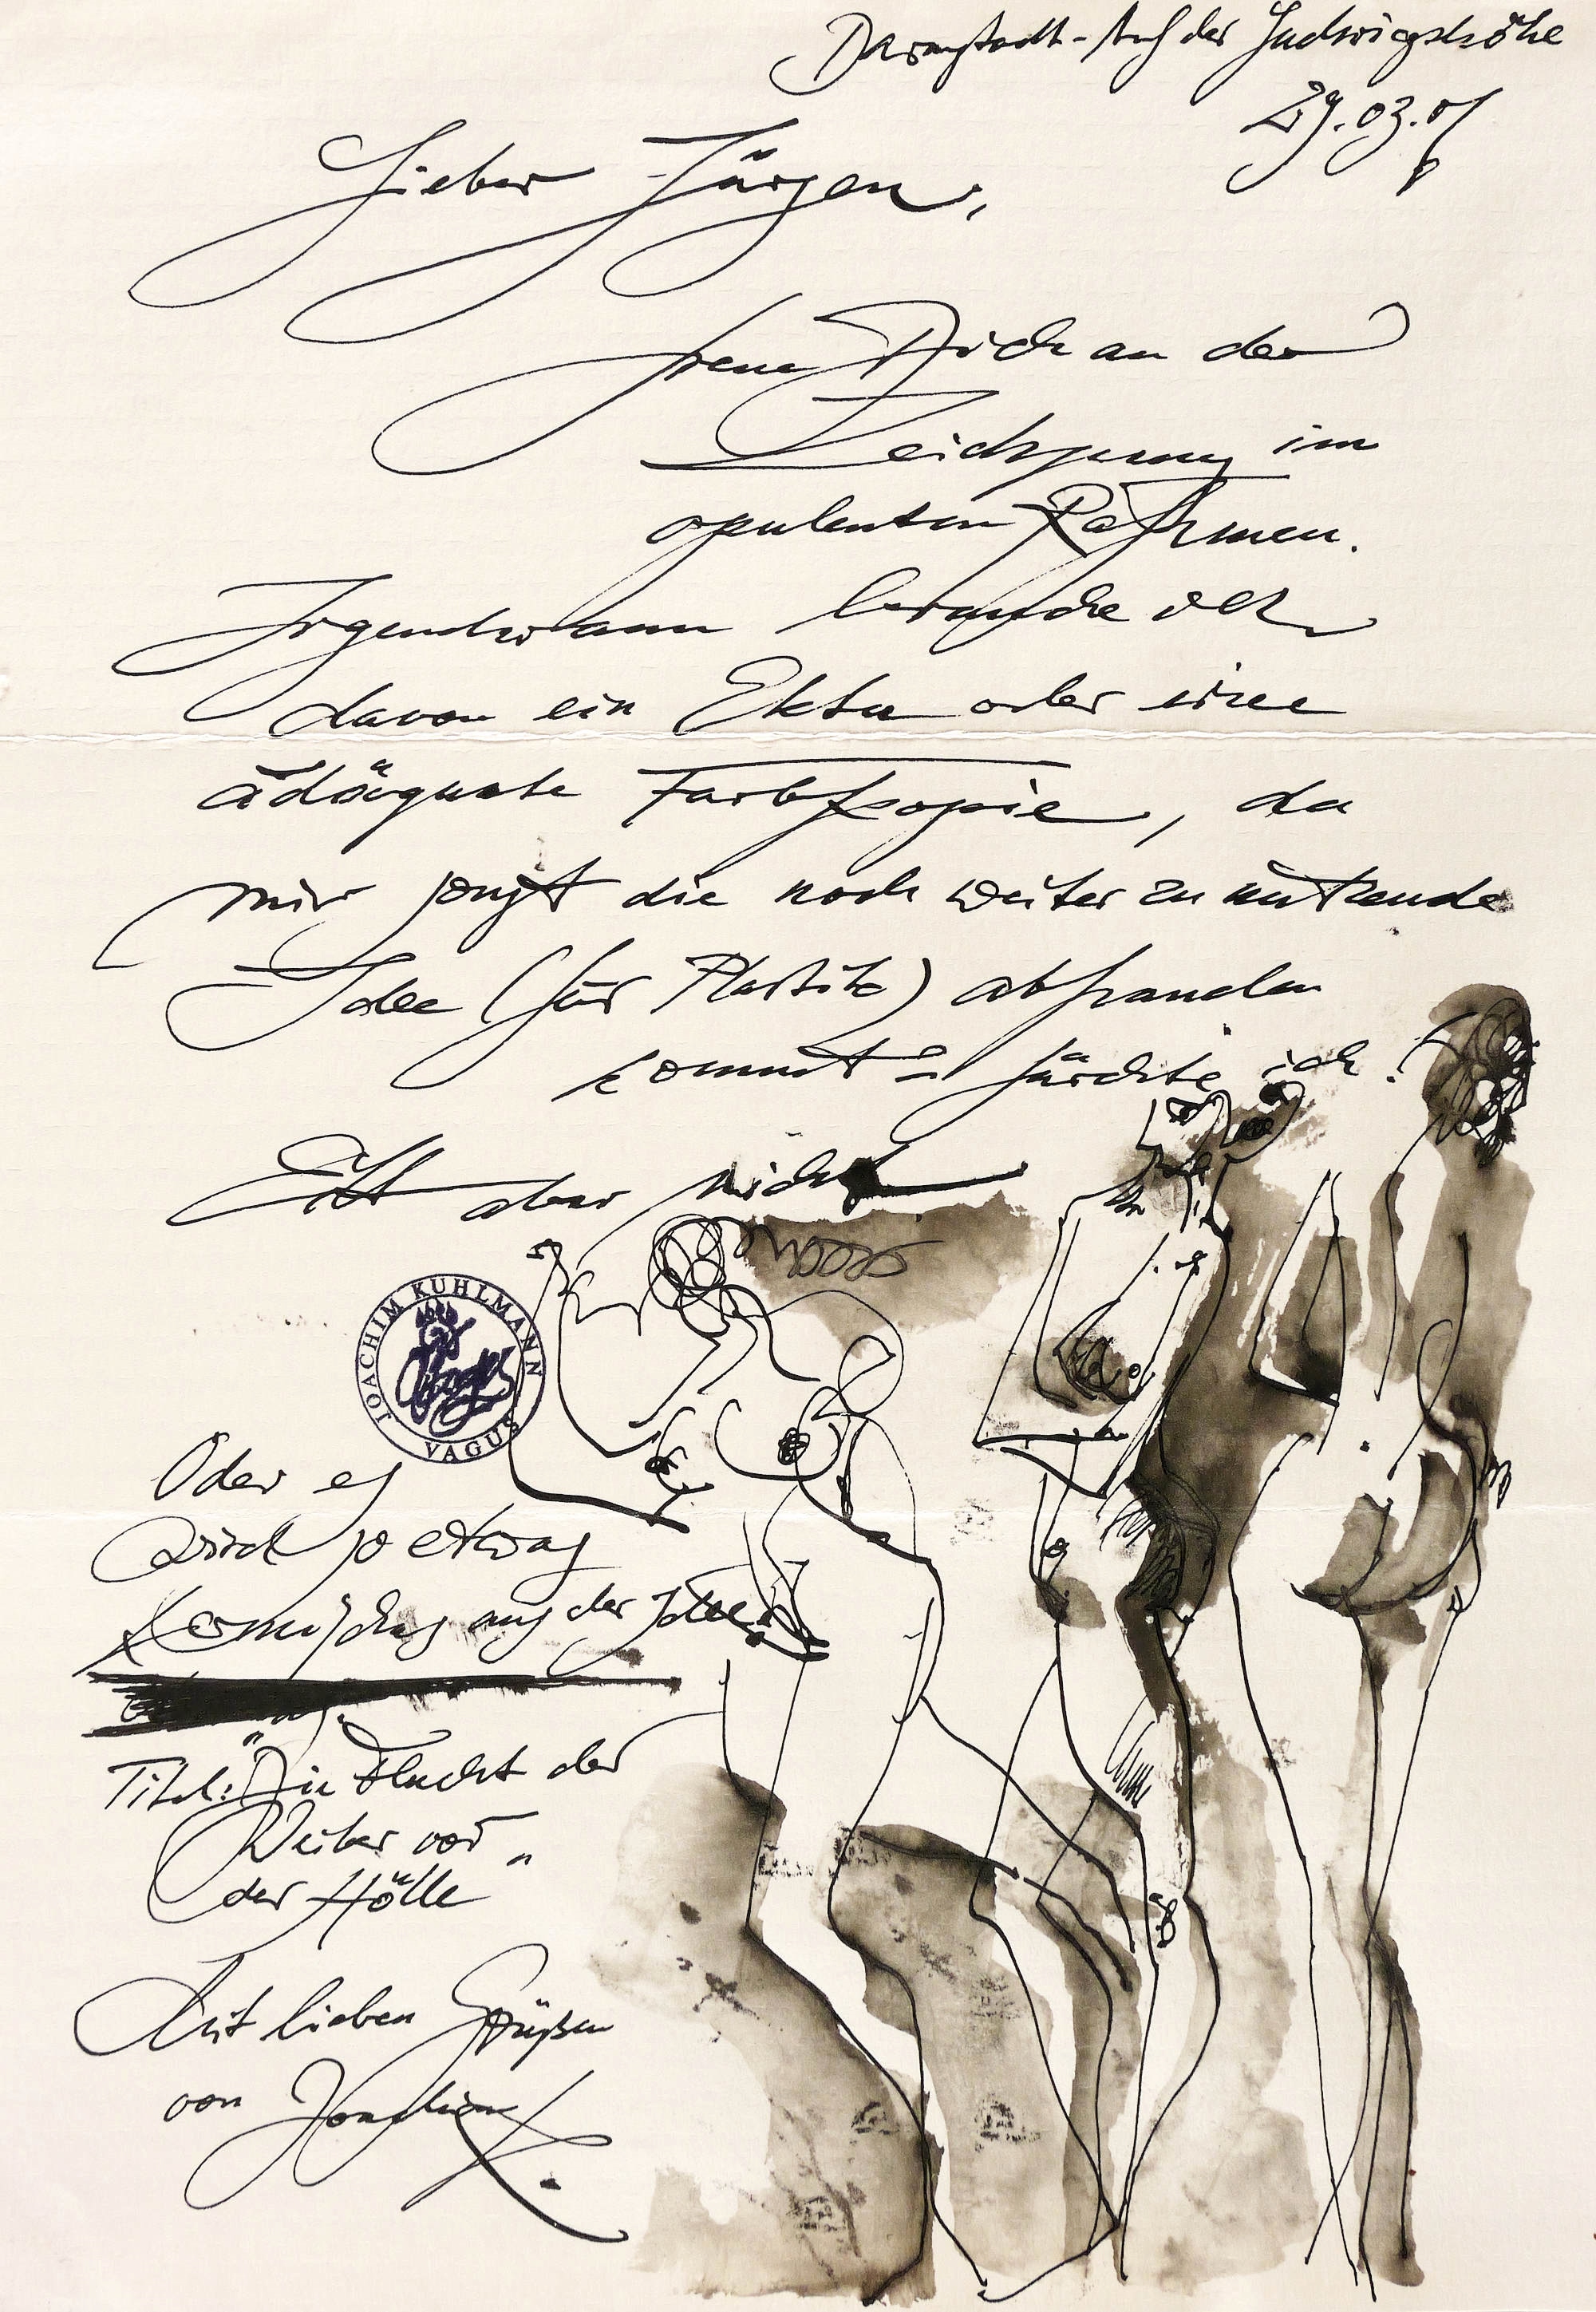 Darmstadt-Auf der Ludwigshöhe
29.03.01
Lieber Jürgen,
freue Dich an der
Zeichnung im
opulenten Rahmen.
Irgendwann brauche ich
davon ein Ekta oder eine
ädäquate Farbkopie, da
mir sonst die noch weiter zu nutzende
Idee (für Plastik) abhanden
kommt = fürchte ich!
Eilt aber nicht
JOACHIM KUHLMANN
VAGUS
Oder es
wird so etwas
Komisches aus der Idee
Titel: "Die Flucht der
Weiber vor
der Hölle"
Mit lieben Grüßen
von Joachim K.